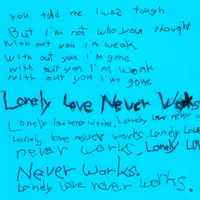 you told me I was tough
But I'm not who you thought
With out you I'm weak
With out you I'm gone
with out you I'm weak
with out you I'm gone
Lonely Love Never Works
Lonely love never works. Lonely love never works
Lonely love never works. Lonely Love
never works. Lonely Lov
Never Works.
Lonely love never works.